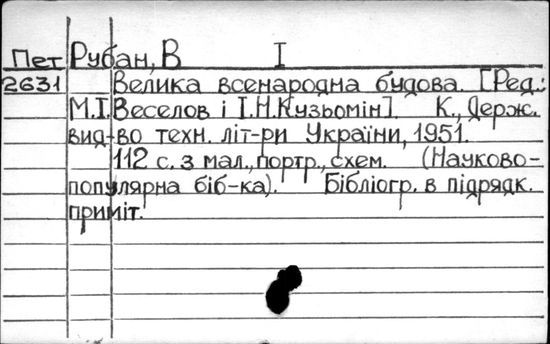 Пет Рубан, В I
2631 Велика всенародна будова. [Ред.:
М.І.Веселов і І.Н.Кузьомін]. К., Держ.
вид-во техн. літ-ри України, 1951.
112 с. з мал., портр., схем. (Науково-
популярна біб-ка). Бібліогр. в підрядк.
приміт.